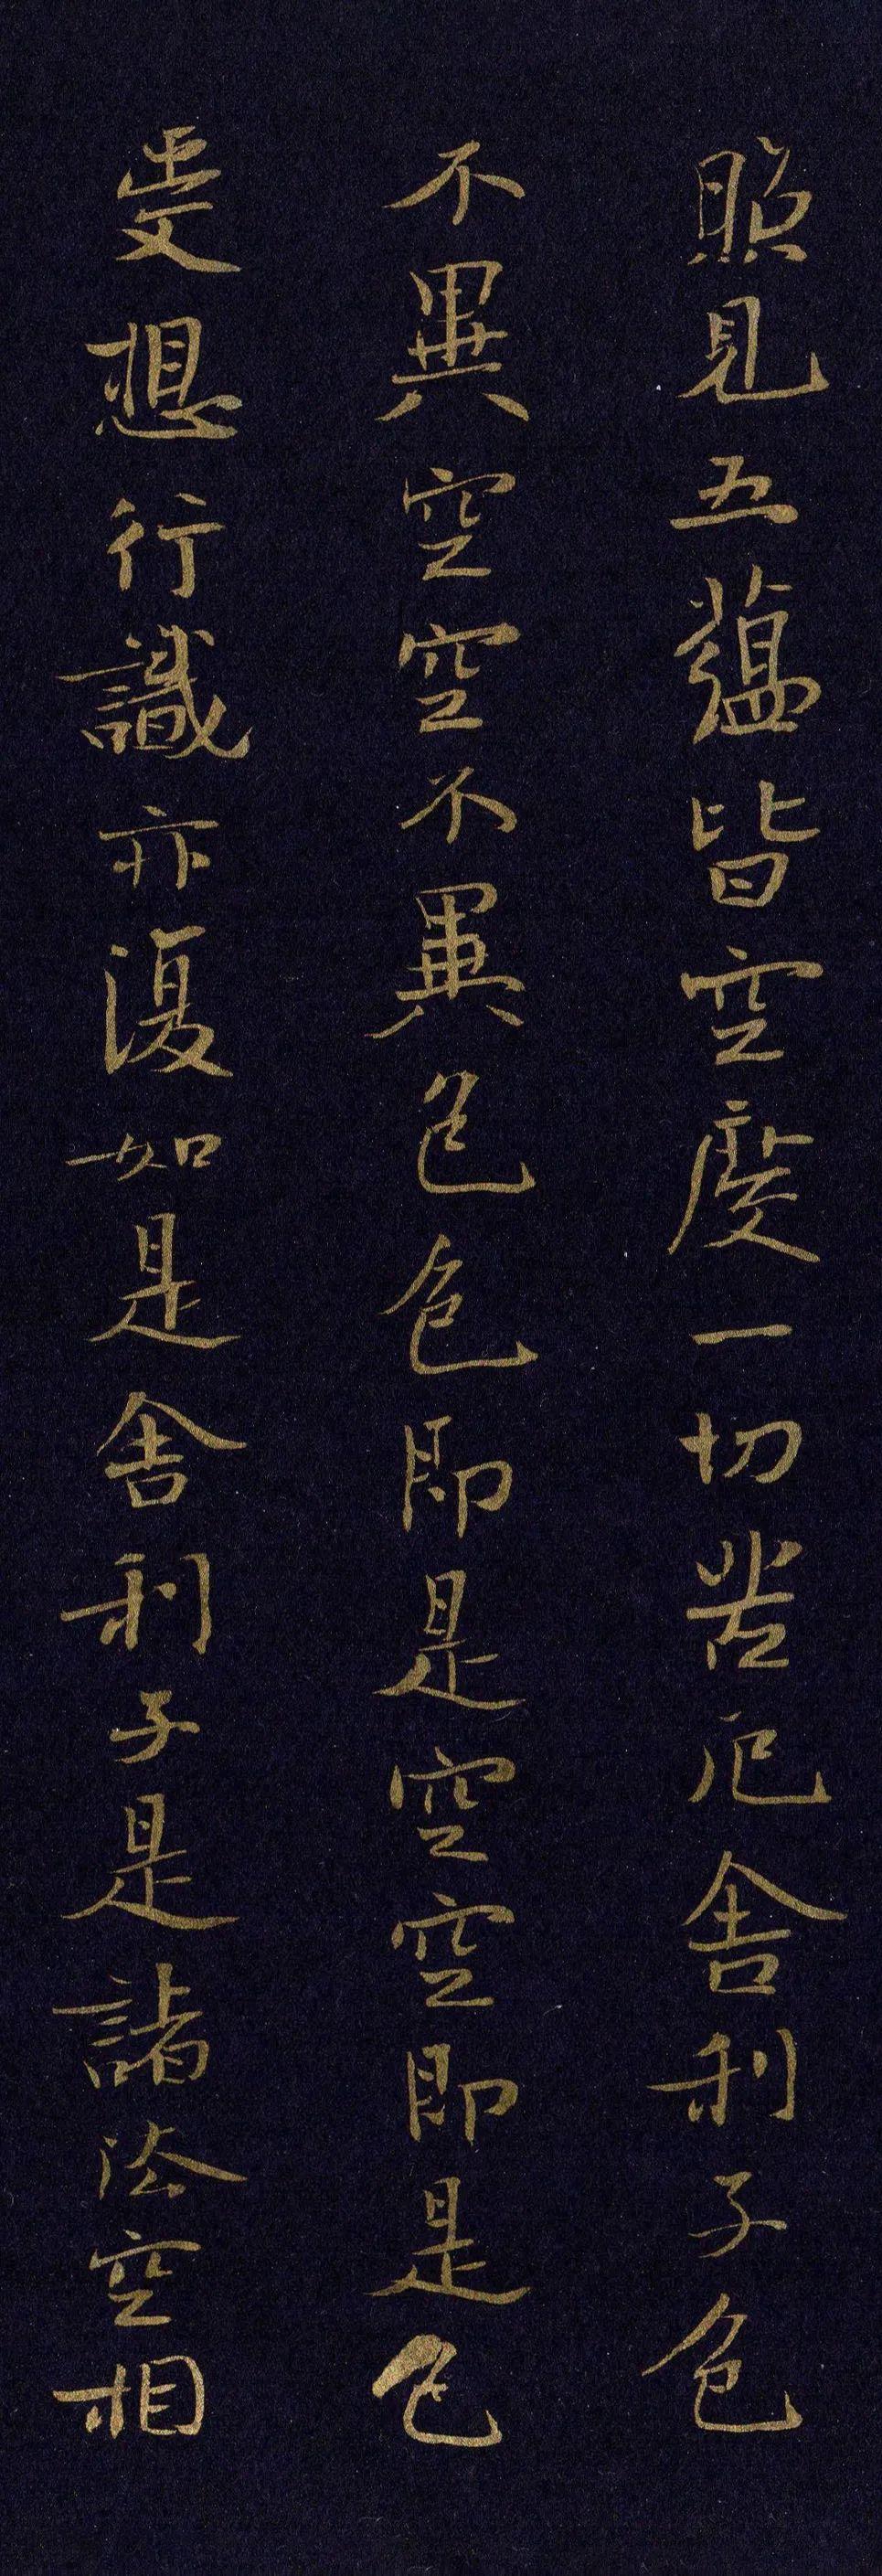 照見五蘊皆空度一切苦厄舍利子色
不異空空不異色色即是空空即是色
受想行識亦復如是舍利子是諸法空相